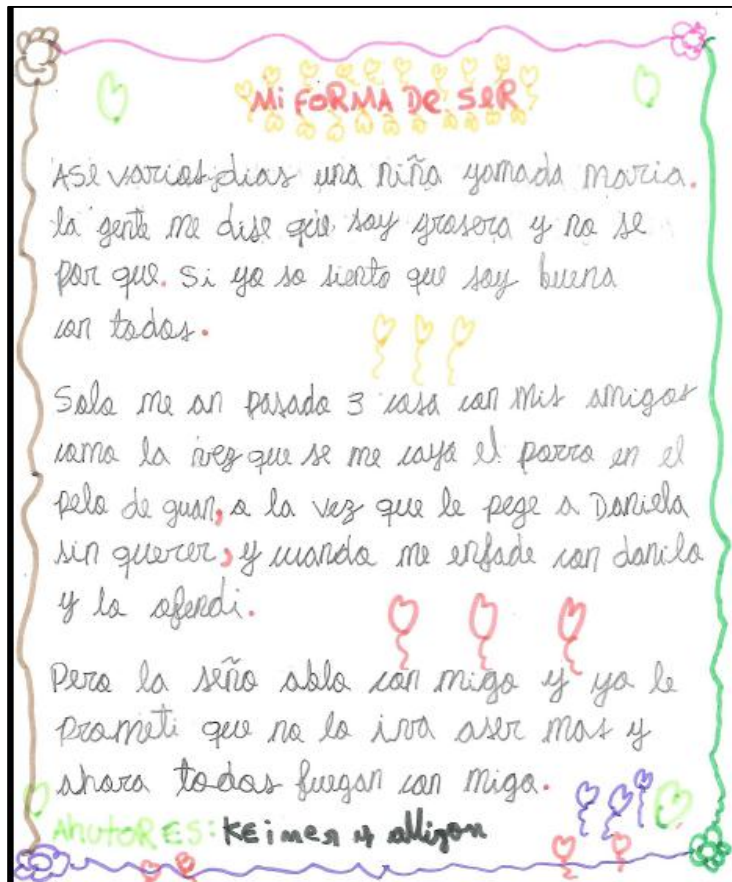 Mi FORMA DE SER
ASE varios dias una niña yamada maria.
la gente me dise que soy grosera y no se
por que. Si yo so siento que soy buena
con todos.
Solo me an pasado 3 cosa con mis amigos
como la vez que se me cayo el porro en el
pelo de guan, o la vez que le pege a Daniela
sin querer, y cuando me enfade con danila
y la ofendi.
Pero la seño ablo con migo y yo le
prometi que no lo iva aser mas y
ahora todos fuegan con migo.
AhutoRES: KEiner y allizon